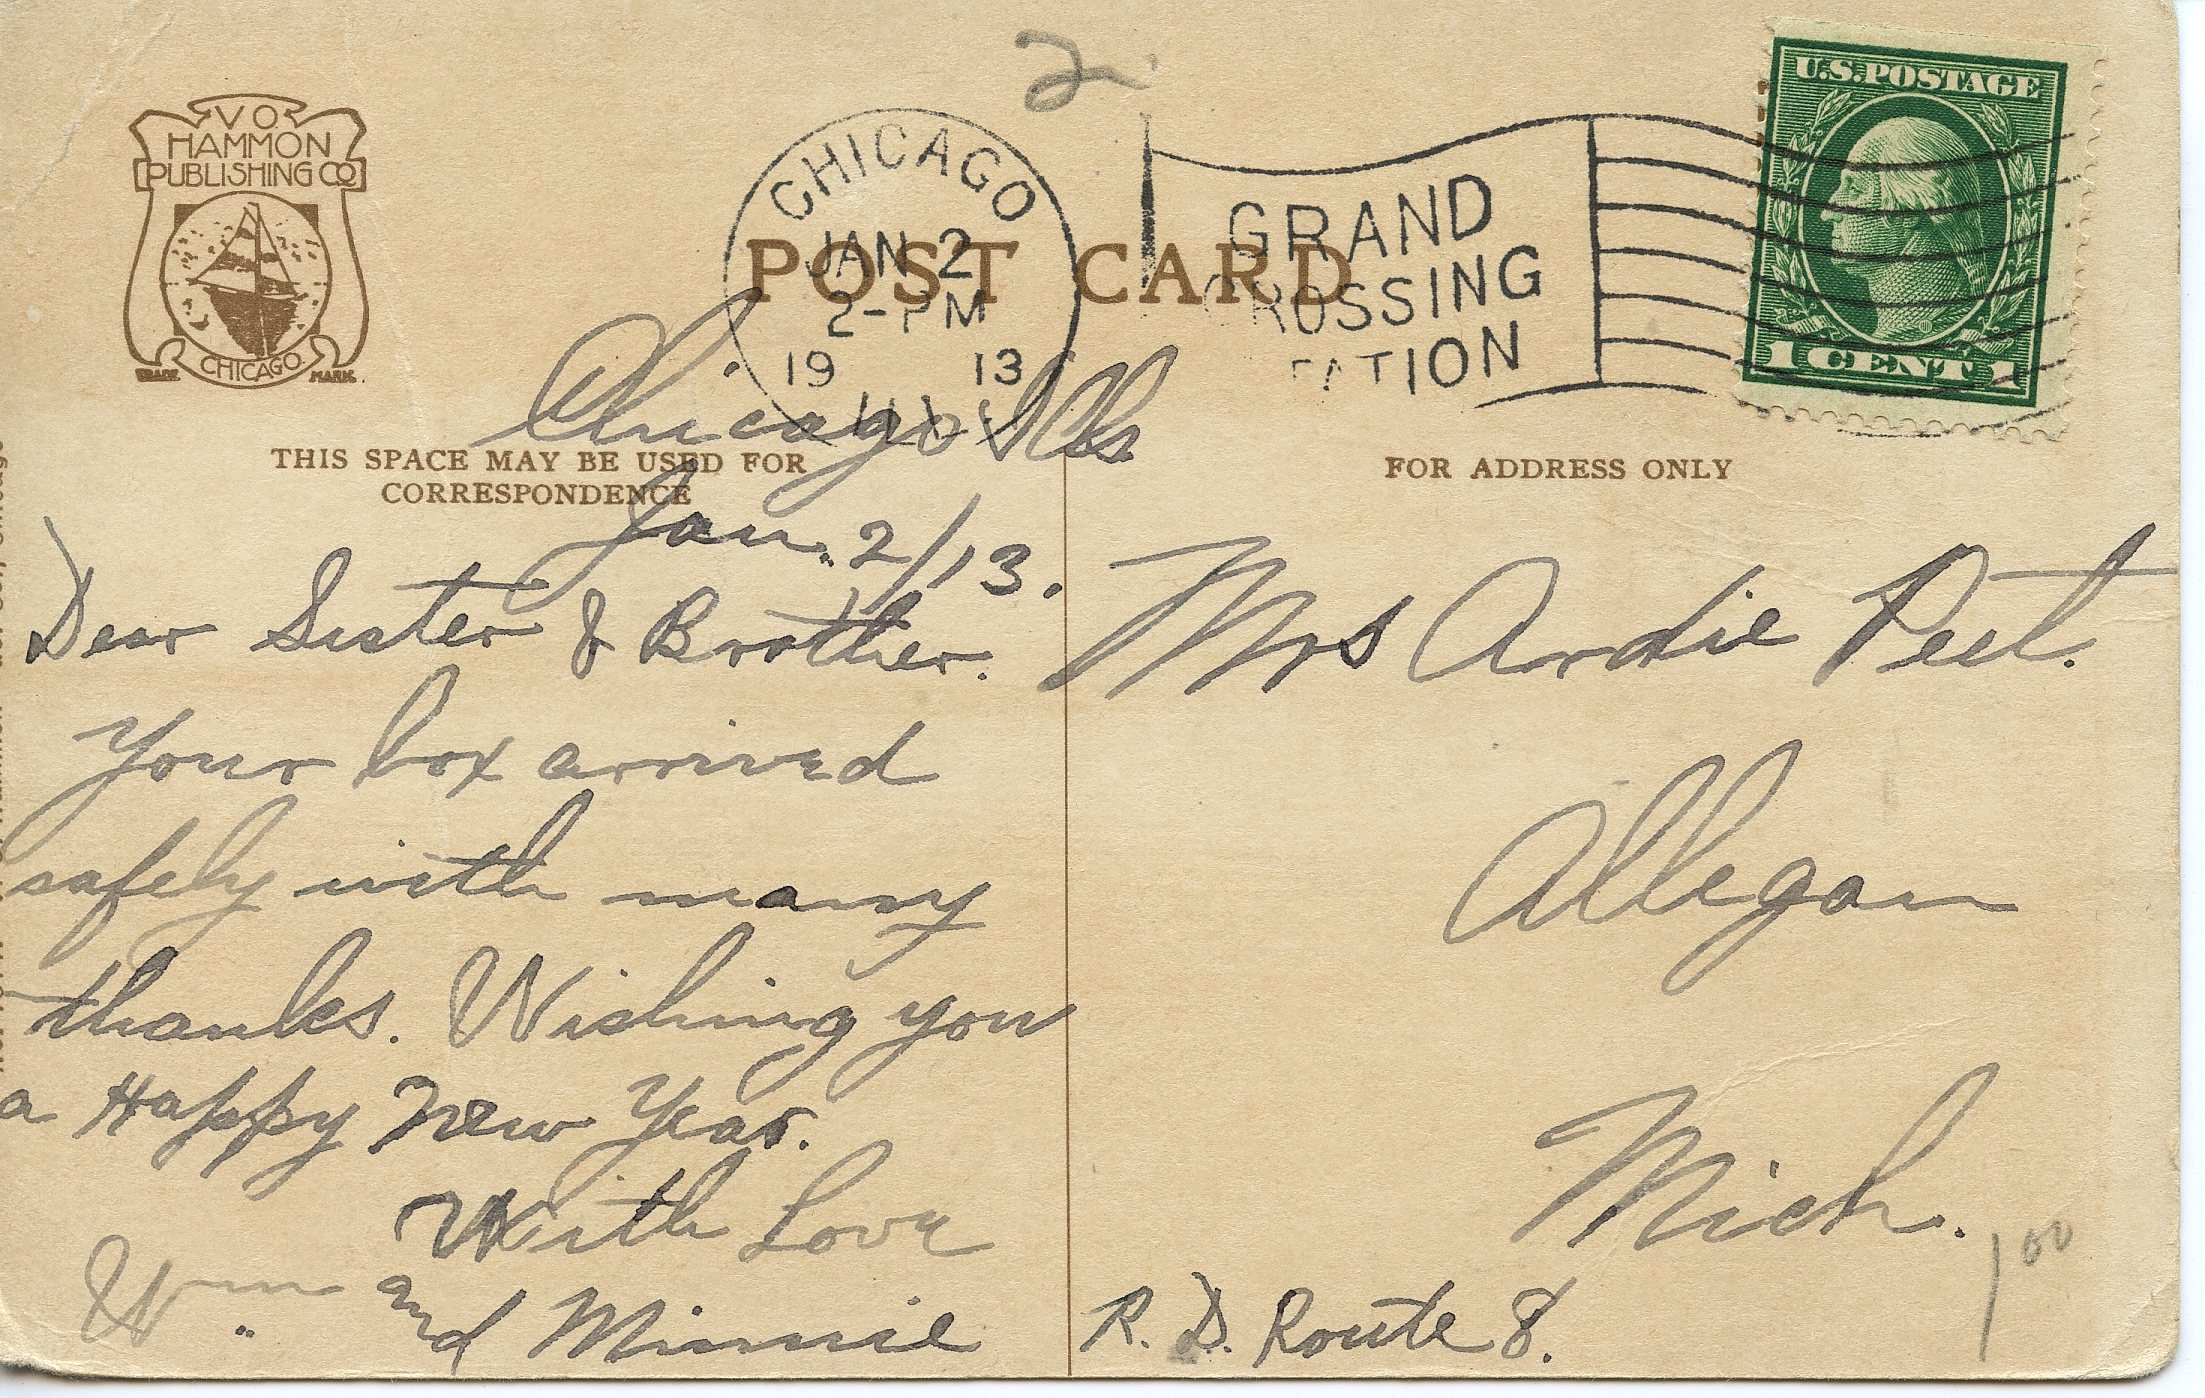 V.O.
HAMMON
PUBLISHING CO.
CHICAGO
TRADE MARK.
2
CHICAGO
JAN 2
2-PM
19 13
ILL.
GRAND
CROSSING
STATION
U.S.POSTAGE
1 CENT 1
POST CARD
THIS SPACE MAY BE USED FOR
CORRESPONDENCE
FOR ADDRESS ONLY
Chicago Ills
Jan. 2/13.
Dear Sister & Brother.
Your box arrived
safely with many
thanks. Wishing you
a Happy New Year.
With Love
Wm and Minnie
Mrs Ardie Peet.
Allegan
Mich.
R. D. Route 8.
1 00